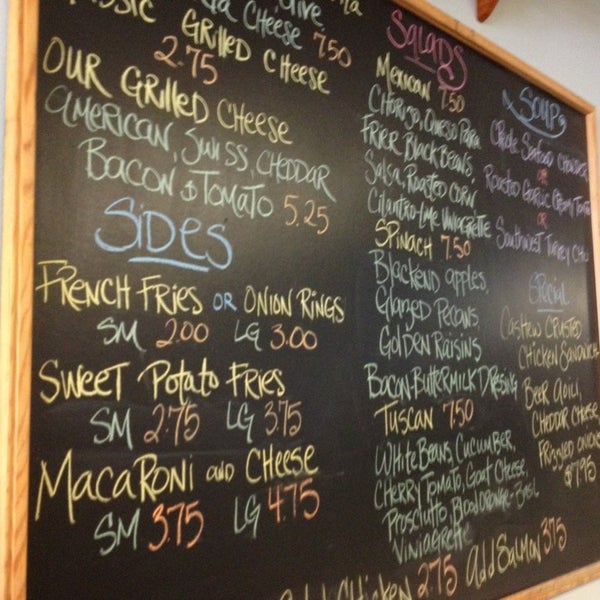 Olive
Cheese 7.50
Grilled Cheese
2.75
Our Grilled Cheese
American, Swiss, Cheddar
Bacon & Tomato 5.25
Sides
French Fries or Onion Rings
SM 2.00 LG 3.00
Sweet Potato Fries
SM 2.75 LG 3.75
Macaroni and Cheese
SM 3.75 LG 4.75
Salads
Mexican 7.50
Chorizo, Queso Para
Frier, Black Beans,
Salsa, Roasted Corn
Cilantro-Lime Vinaigrette
Spinach 7.50
Blackend Apples,
Glazed Pecans,
Golden Raisins
Bacon Buttermilk Dressing
Tuscan 7.50
White Beans, Cucumber,
Cherry Tomato, Goat Cheese,
Prosciutto, Blood Orange-Basil
Viniagrette
Add Salmon 3.75
Chicken 2.75
Soups
Seafood Chowder
or
Roasted Garlic Cream
or
Southwest Turkey
Special
Cashew Crusted
Chicken Sandwich
Beer Aoili,
Cheddar Cheese
Frizzled Onions
$7.95